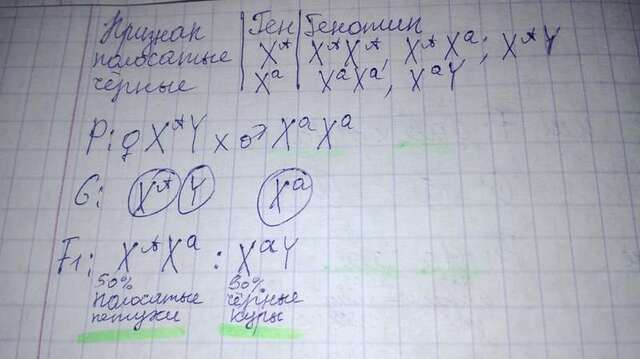 Признак | Ген | Генотип
полосатые | Xᴬ | XᴬXᴬ, XᴬXᵃ; XᴬY
чёрные | Xᵃ | XᵃXᵃ, XᵃY
P: ♀ XᴬY x ♂ XᵃXᵃ
G: Xᴬ Y Xᵃ
F₁: XᴬXᵃ : XᵃY
50% 50%
полосатые чёрные
петухи куры